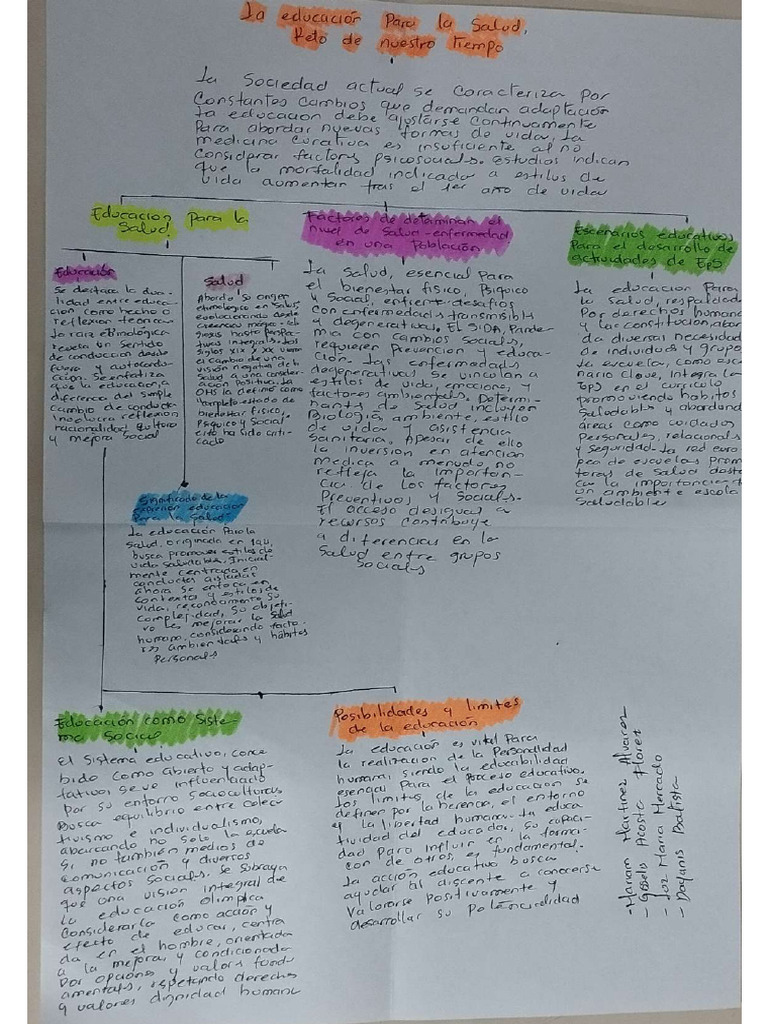 La educación Para la Salud,
Reto de nuestro Tiempo
La Sociedad actual se caracteriza por
Constantes Cambios que demandan adaptación
La educación debe ajustarse continuamente
Para abordar nuevas formas de vida, la
medicina curativa es insuficiente al no
Considerar factores psicosociales. estudios indican
que la mortalidad indicador a estilos de
vida aumentan tras el 1er año de vida
Educación Para la
Salud
Educación
Se destaca la dua-
lidad entre educa-
ción como hecho o
reflexión teórica.
La raíz etimológica
revela un sentido
de conducción desde
fuera y autoeduca-
ción. Se enfatiza
que la educación, a
diferencia del simple
cambio de conducta
involucra reflexión
racionalidad, cultura
y mejora social
Salud
Aborda su origen
etimológico en Salus,
evolucionando desde
creencias mágico-reli
giosas hasta Perspec-
tivas integrales. Los
Siglos XIX y XX vieron
el cambio de una
visión negativa de la
Salud a una consider-
ación Positiva. La
OMS la define como
Completo estado de
bienestar físico,
Psíquico y Social
esto ha sido criti-
cado
Significado de la
expresión educación
Para la Salud
La educación Para la
Salud, originada en 1911,
busca promover estilos de
vida saludables. Inicial-
mente centrada en
conductas aisladas
ahora se enfoca en
contexto y estilos de
vida, reconociendo su
complejidad, su objeti-
vo es mejorar la Salud
humana, considerando facto-
res ambientales y hábitos
Personales
Factores de determinan el
nivel de Salud-enfermedad
en una Población
La Salud, esencial para
el bienestar físico, Psíquico
y Social, enfrenta desafíos
con enfermedades transmisibles
y degenerativas. El SIDA, Pande-
mia con Cambios Sociales,
requieren Prevención y educa-
ción. Las enfermedades
degenerativas se vinculan a
estilos de vida, emociones, y
factores ambientales. Determi-
nants de Salud incluyen
Biología, ambiente, estilo
de vida y asistencia
Sanitaria, Apesar de ello
la inversión en atención
Medica a menudo no
refleja la importan-
cia de los factores
Preventivos y Sociales.
El acceso desigual a
recursos contribuye
a diferencias en la
Salud entre grupos
Sociales
Escenarios educativos
Para el desarrollo de
actividades de EpS
La educación Para
la Salud, respaldada
Por derechos humano
y la constitución, abor
da diversas necesidad
de individuos y grupo
La escuela, como esce
nario clave, integra la
EpS en el currículo
promoviendo hábitos
Saludables y abordando
áreas como cuidados
Personales, relacional
y seguridad. La red euro
pea de escuelas prom
toras de Salud desta
ca la importancia de
un ambiente escola
Saludable
Educación como Siste-
ma Social
El Sistema educativo, conce
bido como abierto y adap-
tativo, se ve influenciado
Por su entorno Sociocultural
Busca equilibrio entre colec
tivismo e individualismo,
abarcando no solo la escuela
Si no también medios de
comunicación y diversos
aspectos Sociales. Se Subraya
que una visión integral de
La educación implica
Considerarla como acción y
efecto de educar, centra
da en el hombre, orientada
a la mejora, y condicionada
Por opciones y valores fund
amentales, respetando derechos
y valores dignidad humana
Posibilidades y limites
de la educación
La educación es vital Para
la realización de la Personalidad
humana, siendo la educibilidad
esencial Para el proceso educativo.
Los limites de la educación se
definen por la herencia, el entorno
y la libertad humana. La educa
tividad del educador, su capaci-
dad para influir en la forma-
ción de otros, es fundamental.
La acción educativo busca
ayudar al discente a conocerse
Valorarse Positivamente y
desarrollar su Potencialidad
- Mariam Martinez Alvarez
- Gisselo Acosta Florez
- Luz Maria Mercado
- Dayanis Batista